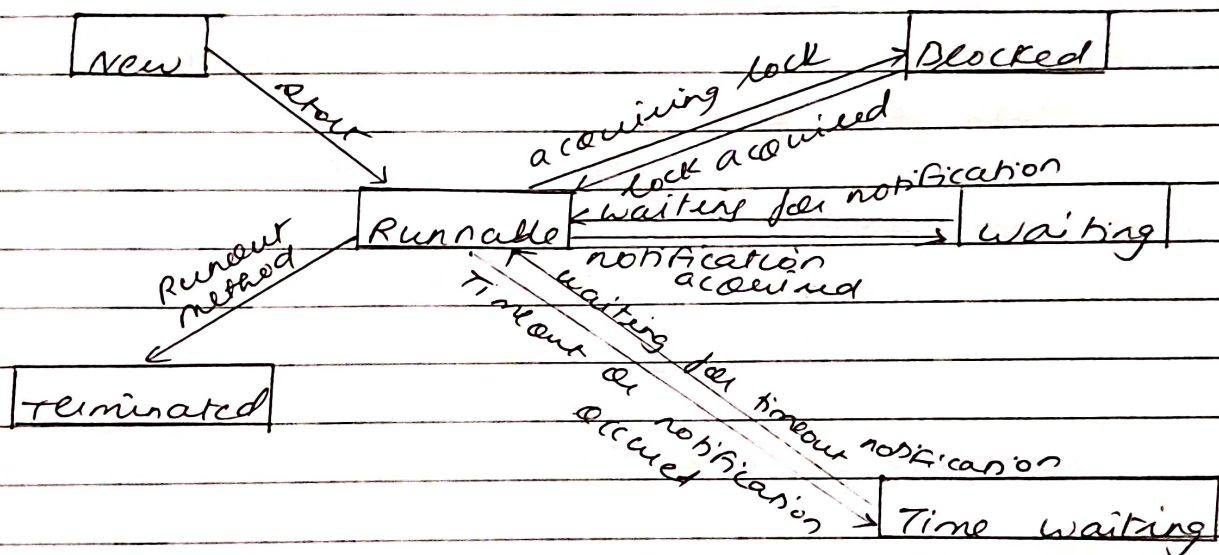 New
Blocked
start
acquiring lock
lock acquired
Runnable
waiting for notification
notification
acquired
Waiting
Runout
method
Terminated
waiting for timeout notification
Timeout or notification
occured
Time waiting